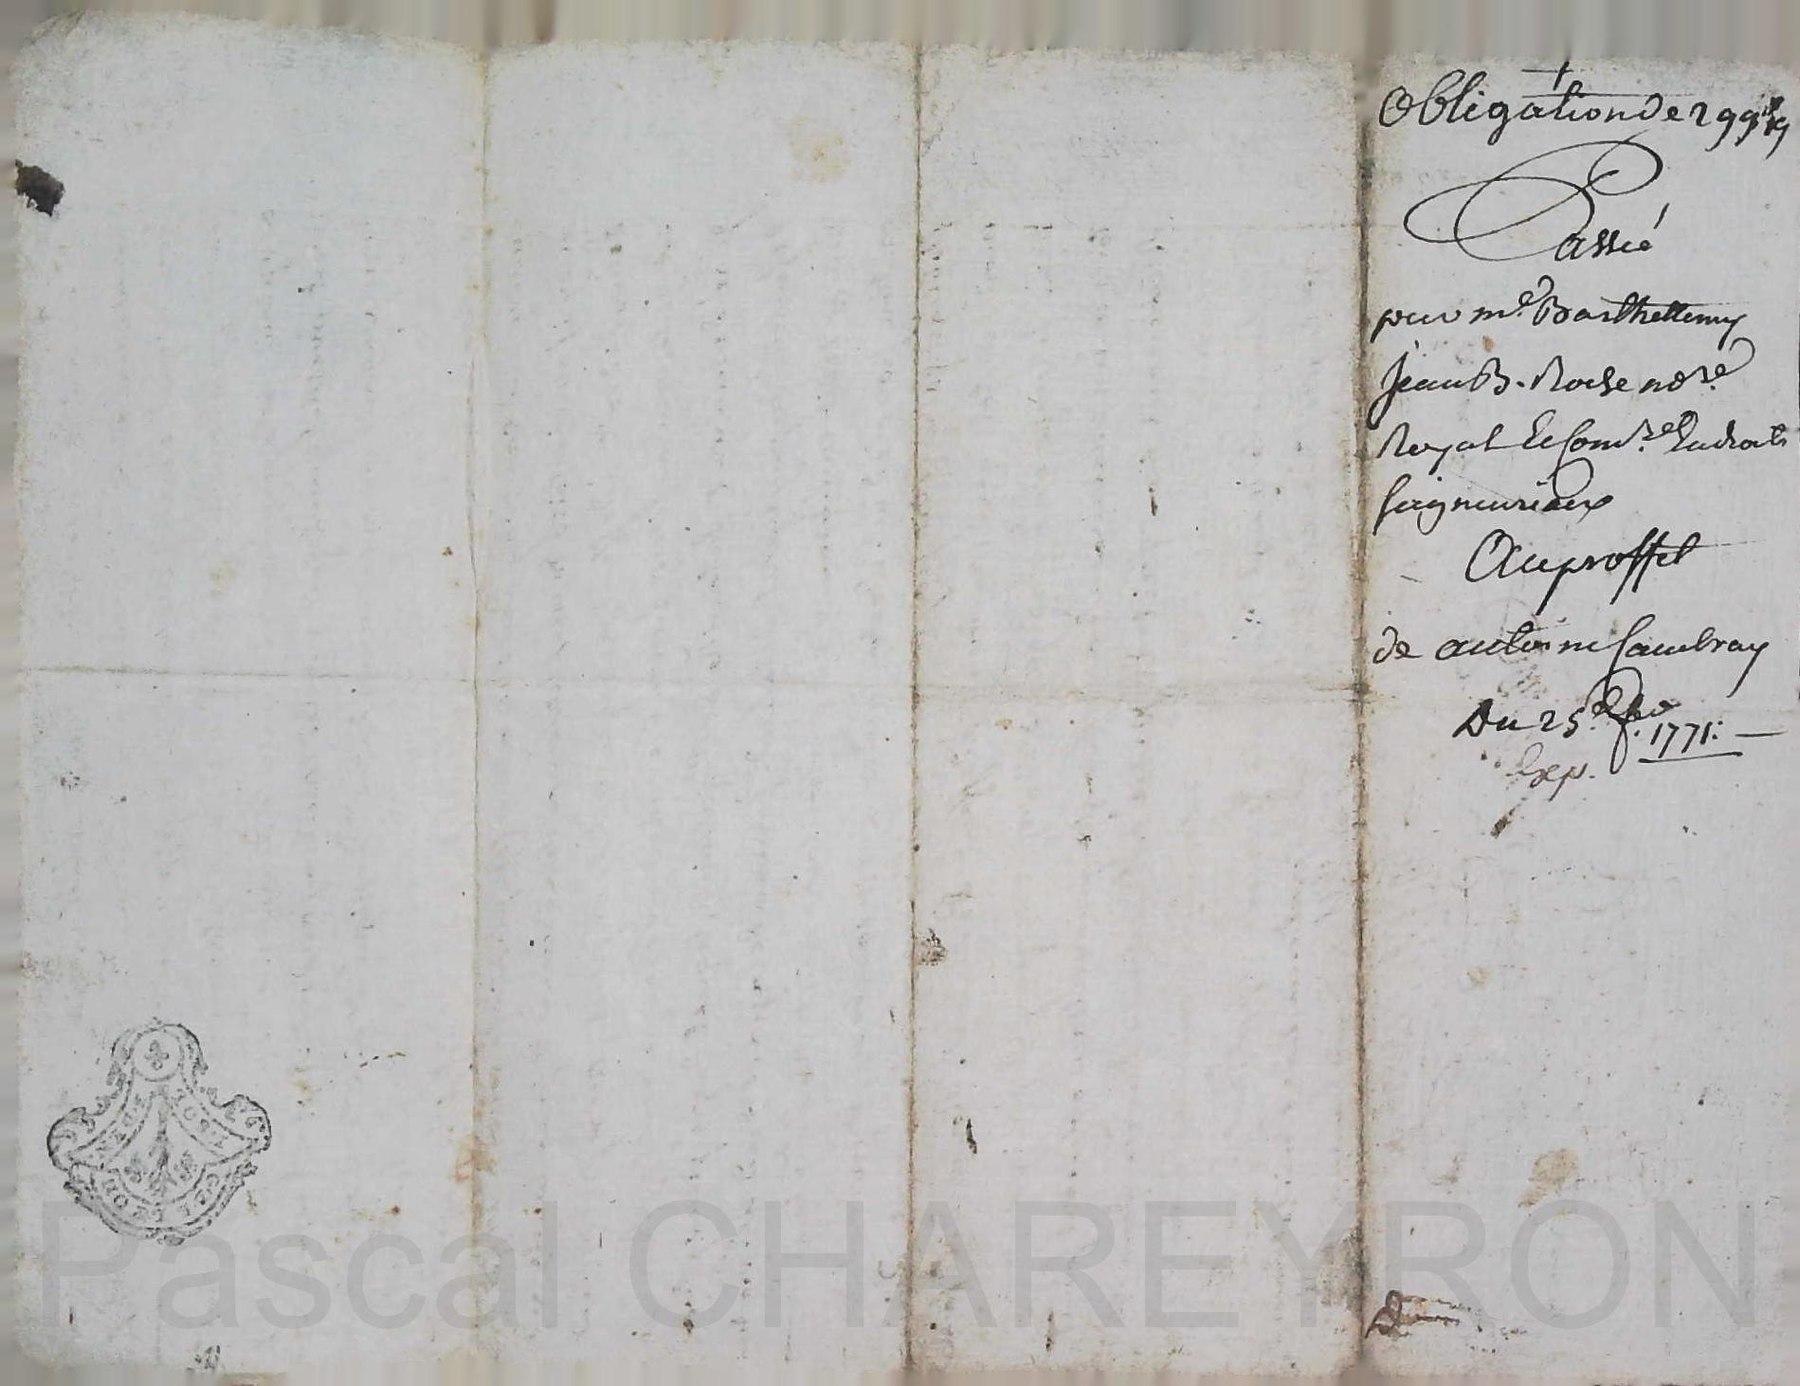 Obligation de 299
Passé
par me Barthellemy
jean B. Roche nore
Royal
seigneuriaux
Au proffit
de antoine Cambray
Du 25e
1771
Exp.
Pascal CHAREYRON